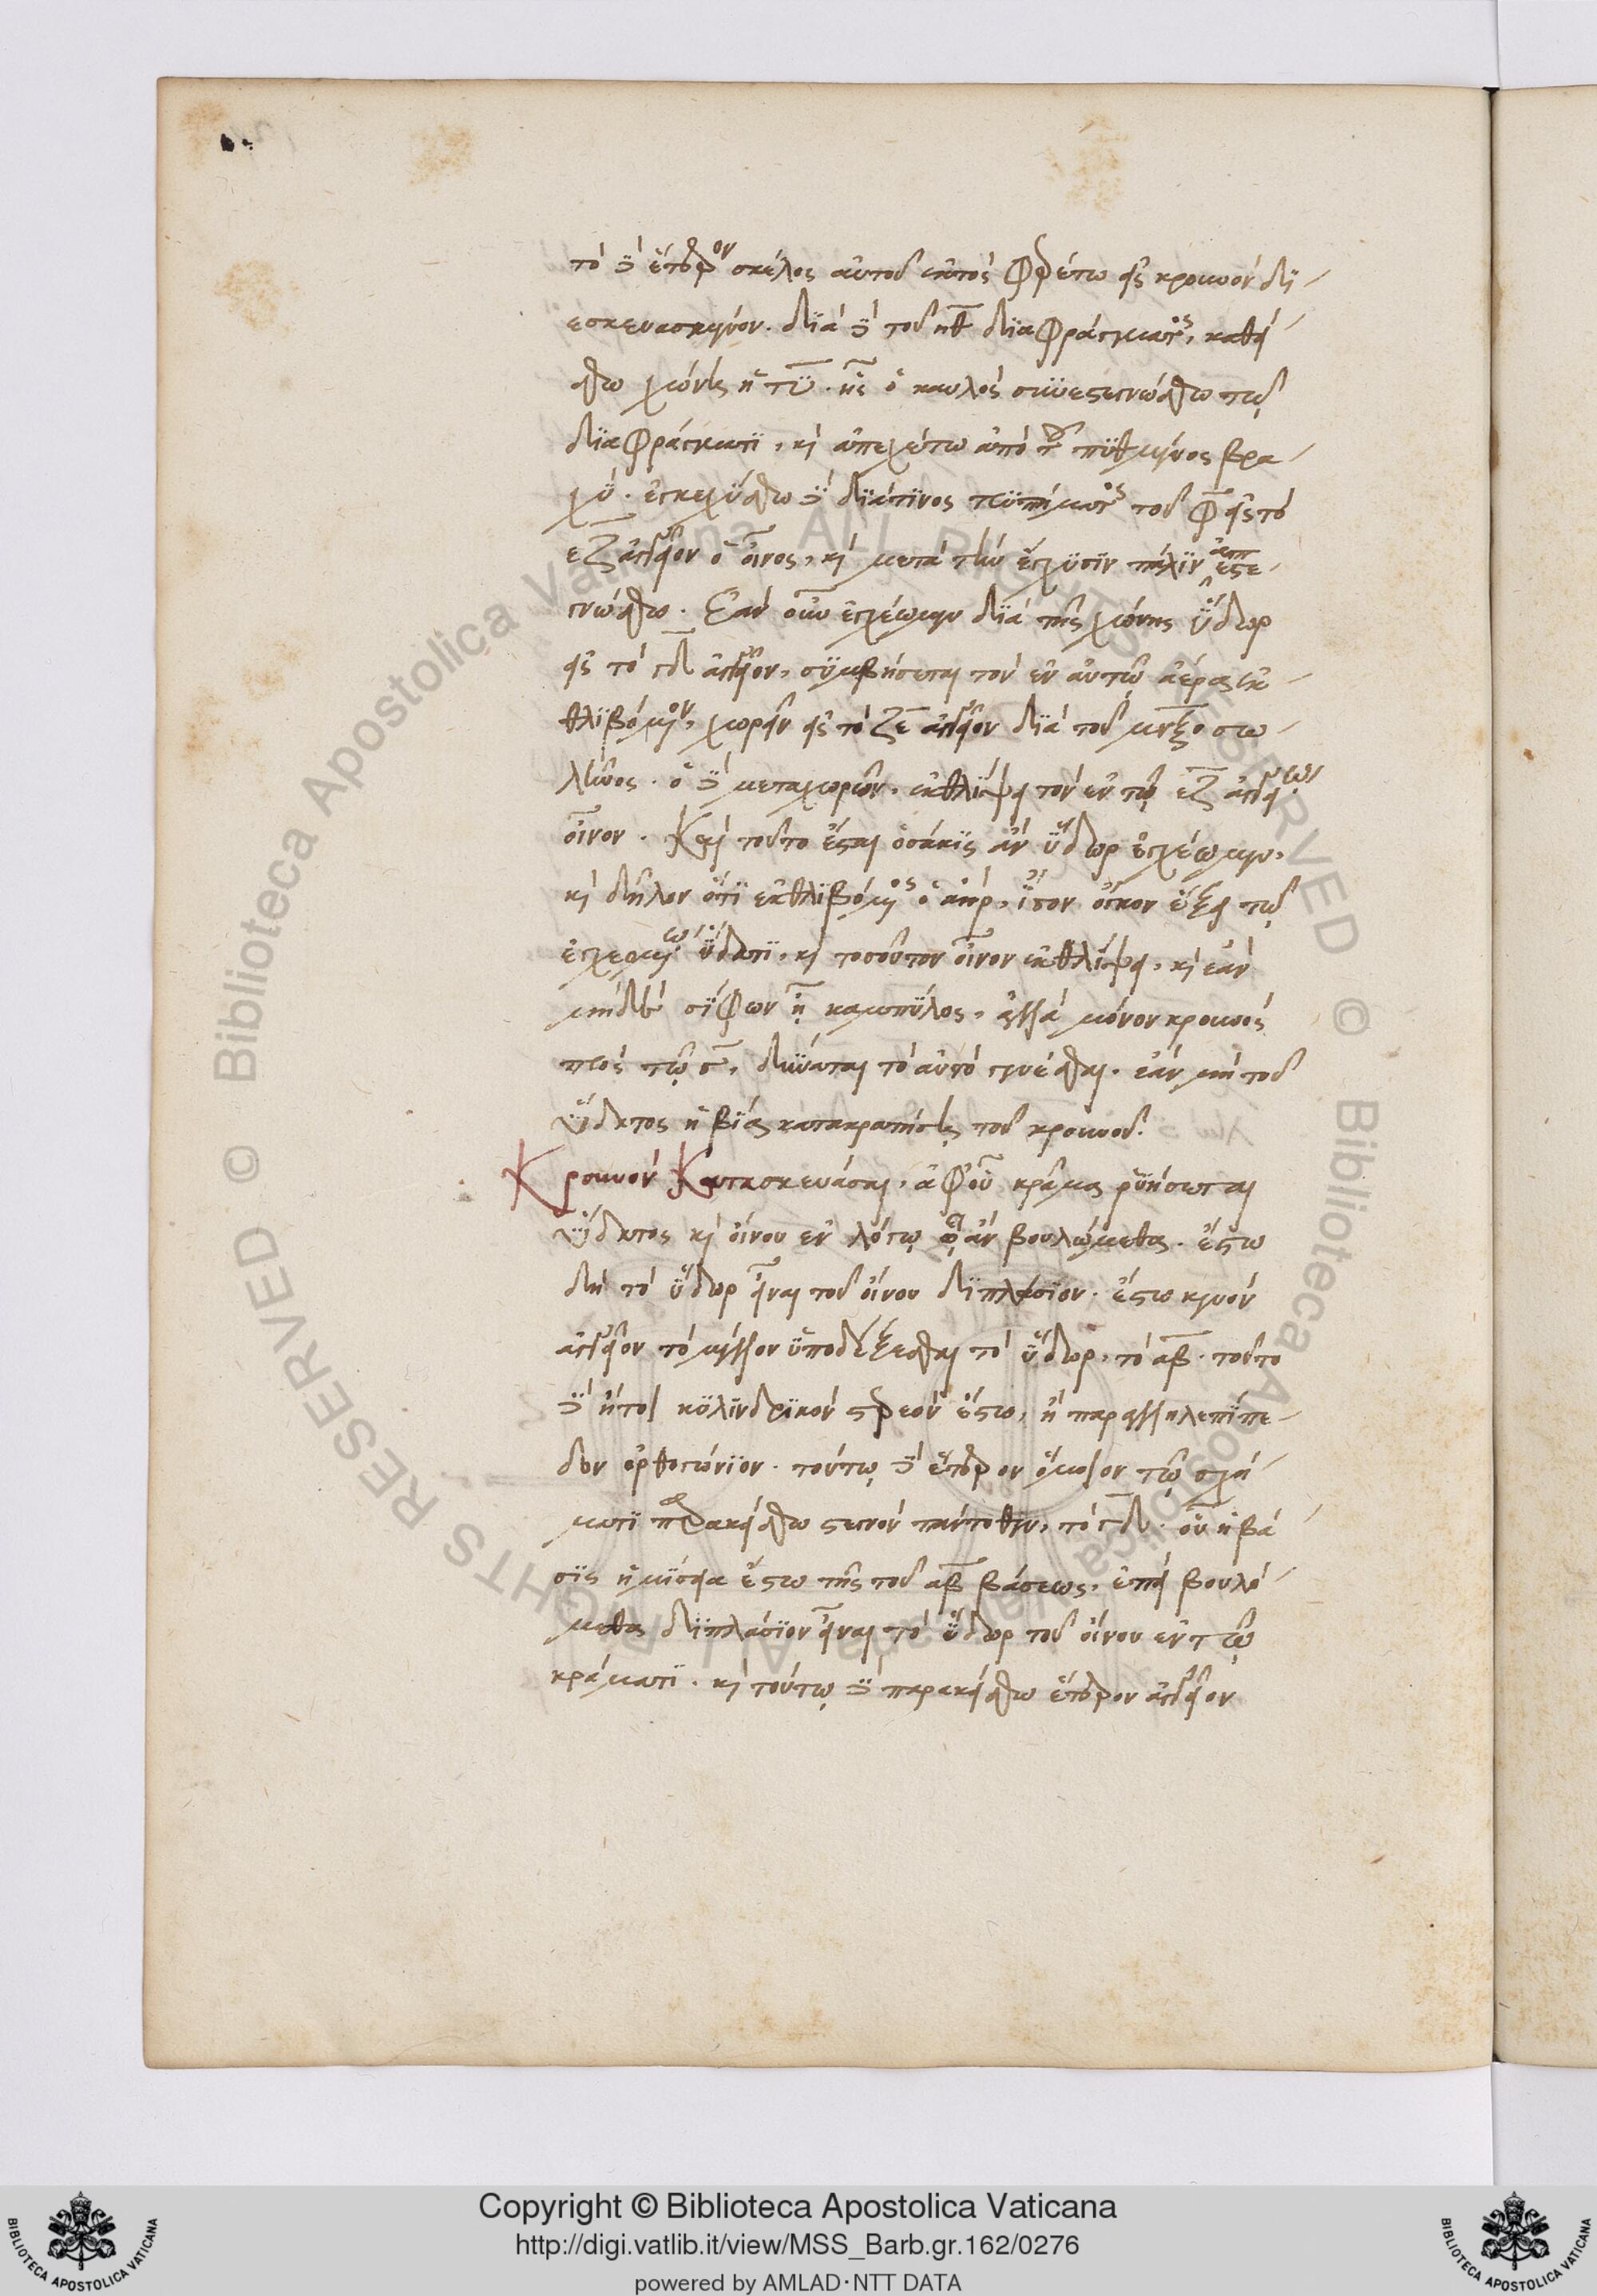 τὸ δὲ ἕτερον σκέλος αὐτοῦ ἐκτὸς φερέτω εἰς κρουνὸν δι-
εσκευασμένον. διὰ δὲ τοῦ ηθ διαφράγματος, καθεί-
σθω χώνη ἡ τυ. ἧς ὁ καυλὸς συνεστεγνώσθω τῷ
διαφράγματι, καὶ ἀπεχέτω ἀπὸ τοῦ πυθμένος βρα-
χύ. ἐγκεχύσθω δὲ διά τινος τρυπήματος τοῦ φ εἰς τὸ
εζ ἀγγεῖον ὁ οἶνος, καὶ μετὰ τὴν ἔγχυσιν πάλιν ἀπεστε-
γνώσθω. Ἐὰν οὖν ἐγχέωμεν διὰ τῆς χώνης ὕδωρ
εἰς τὸ γδ ἀγγεῖον, συμβήσεται τὸν ἐν αὐτῷ ἀέρα ἐκ-
θλιβόμενον, χωρεῖν εἰς τὸ ζε ἀγγεῖον διὰ τοῦ μνξο σω-
λῆνος. ὁ δὲ μεταχωρῶν, ἐκθλίψει τὸν ἐν τῷ εζ ἀγγείῳ
οἶνον. Καὶ τοῦτο ἔσται ὁσάκις ἂν ὕδωρ ἐγχέωμεν,
καὶ δῆλον ὅτι ἐκθλιβόμενος ὁ ἀὴρ, ἴσον ὄγκον ἕξει τῷ
ἐγχεομένῳ ὕδατι, καὶ τοσοῦτον οἶνον ἐκθλίψει, καὶ ἐὰν
μὴ δὲ σίφων ᾖ καμπύλος, ἀλλὰ μόνον κρουνὸς
πρὸς τῷ σ, δύναται τὸ αὐτὸ γενέσθαι. ἐὰν μὴ τοῦ
ὕδατος ἡ βία κατακρατήσῃ τοῦ κρουνοῦ.
Κρουνὸν Κατασκευάσαι, ἀφ' οὗ κρᾶμα ῥυήσεται
ὕδατος καὶ οἴνου ἐν λόγῳ ᾧ ἂν βουλώμεθα. ἔστω
δὴ τὸ ὕδωρ εἶναι τοῦ οἴνου διπλάσιον. ἔστω κενὸν
ἀγγεῖον τὸ μέλλον ὑποδέξεσθαι τὸ ὕδωρ, τὸ αβ. τοῦτο
δὲ ἤτοι κυλινδρικὸν στερεὸν ἔστω, ἢ παραλληλεπίπε-
δον ὀρθογώνιον. τούτῳ δὲ ἕτερον ὅμοιον τῷ σχή-
ματι παρακείσθω στεγνὸν πάντοθεν, τὸ γδ. οὗ ἡ βά-
σις ἡμίσεια ἔστω τῆς τοῦ αβ βάσεως, ἐπεὶ βουλό-
μεθα διπλάσιον εἶναι τὸ ὕδωρ τοῦ οἴνου ἐν τῷ
κράματι. καὶ τούτῳ δὲ παρακείσθω ἕτερον ἀγγεῖον
Copyright © Biblioteca Apostolica Vaticana
http://digi.vatlib.it/view/MSS_Barb.gr.162/0276
powered by AMLAD·NTT DATA